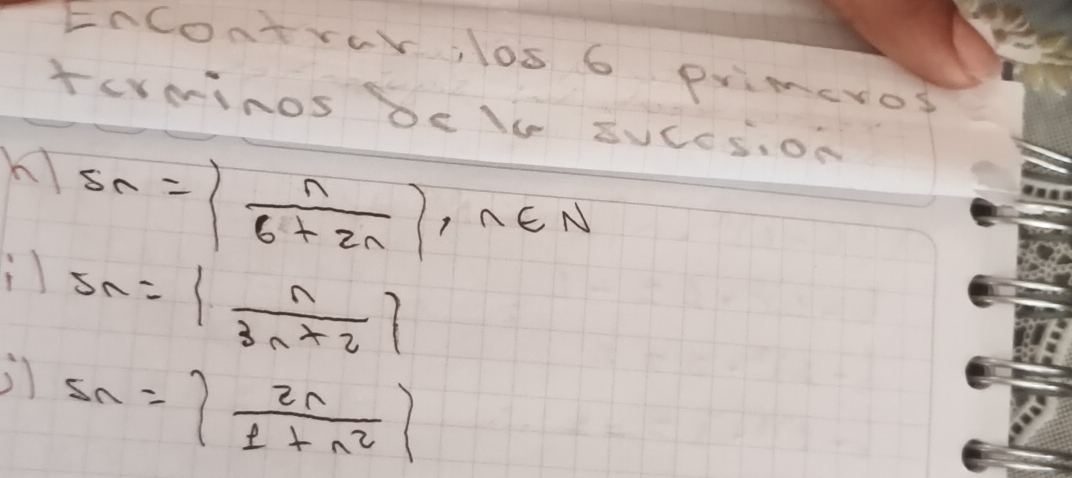 Encontrar los 6 primeros
terminos de la sucesion
h) Sn = { n / 6 + 2n }, n ∈ N
i) Sn = { n / 3n + 2 }
j) Sn = { 2n / 1 + n² }